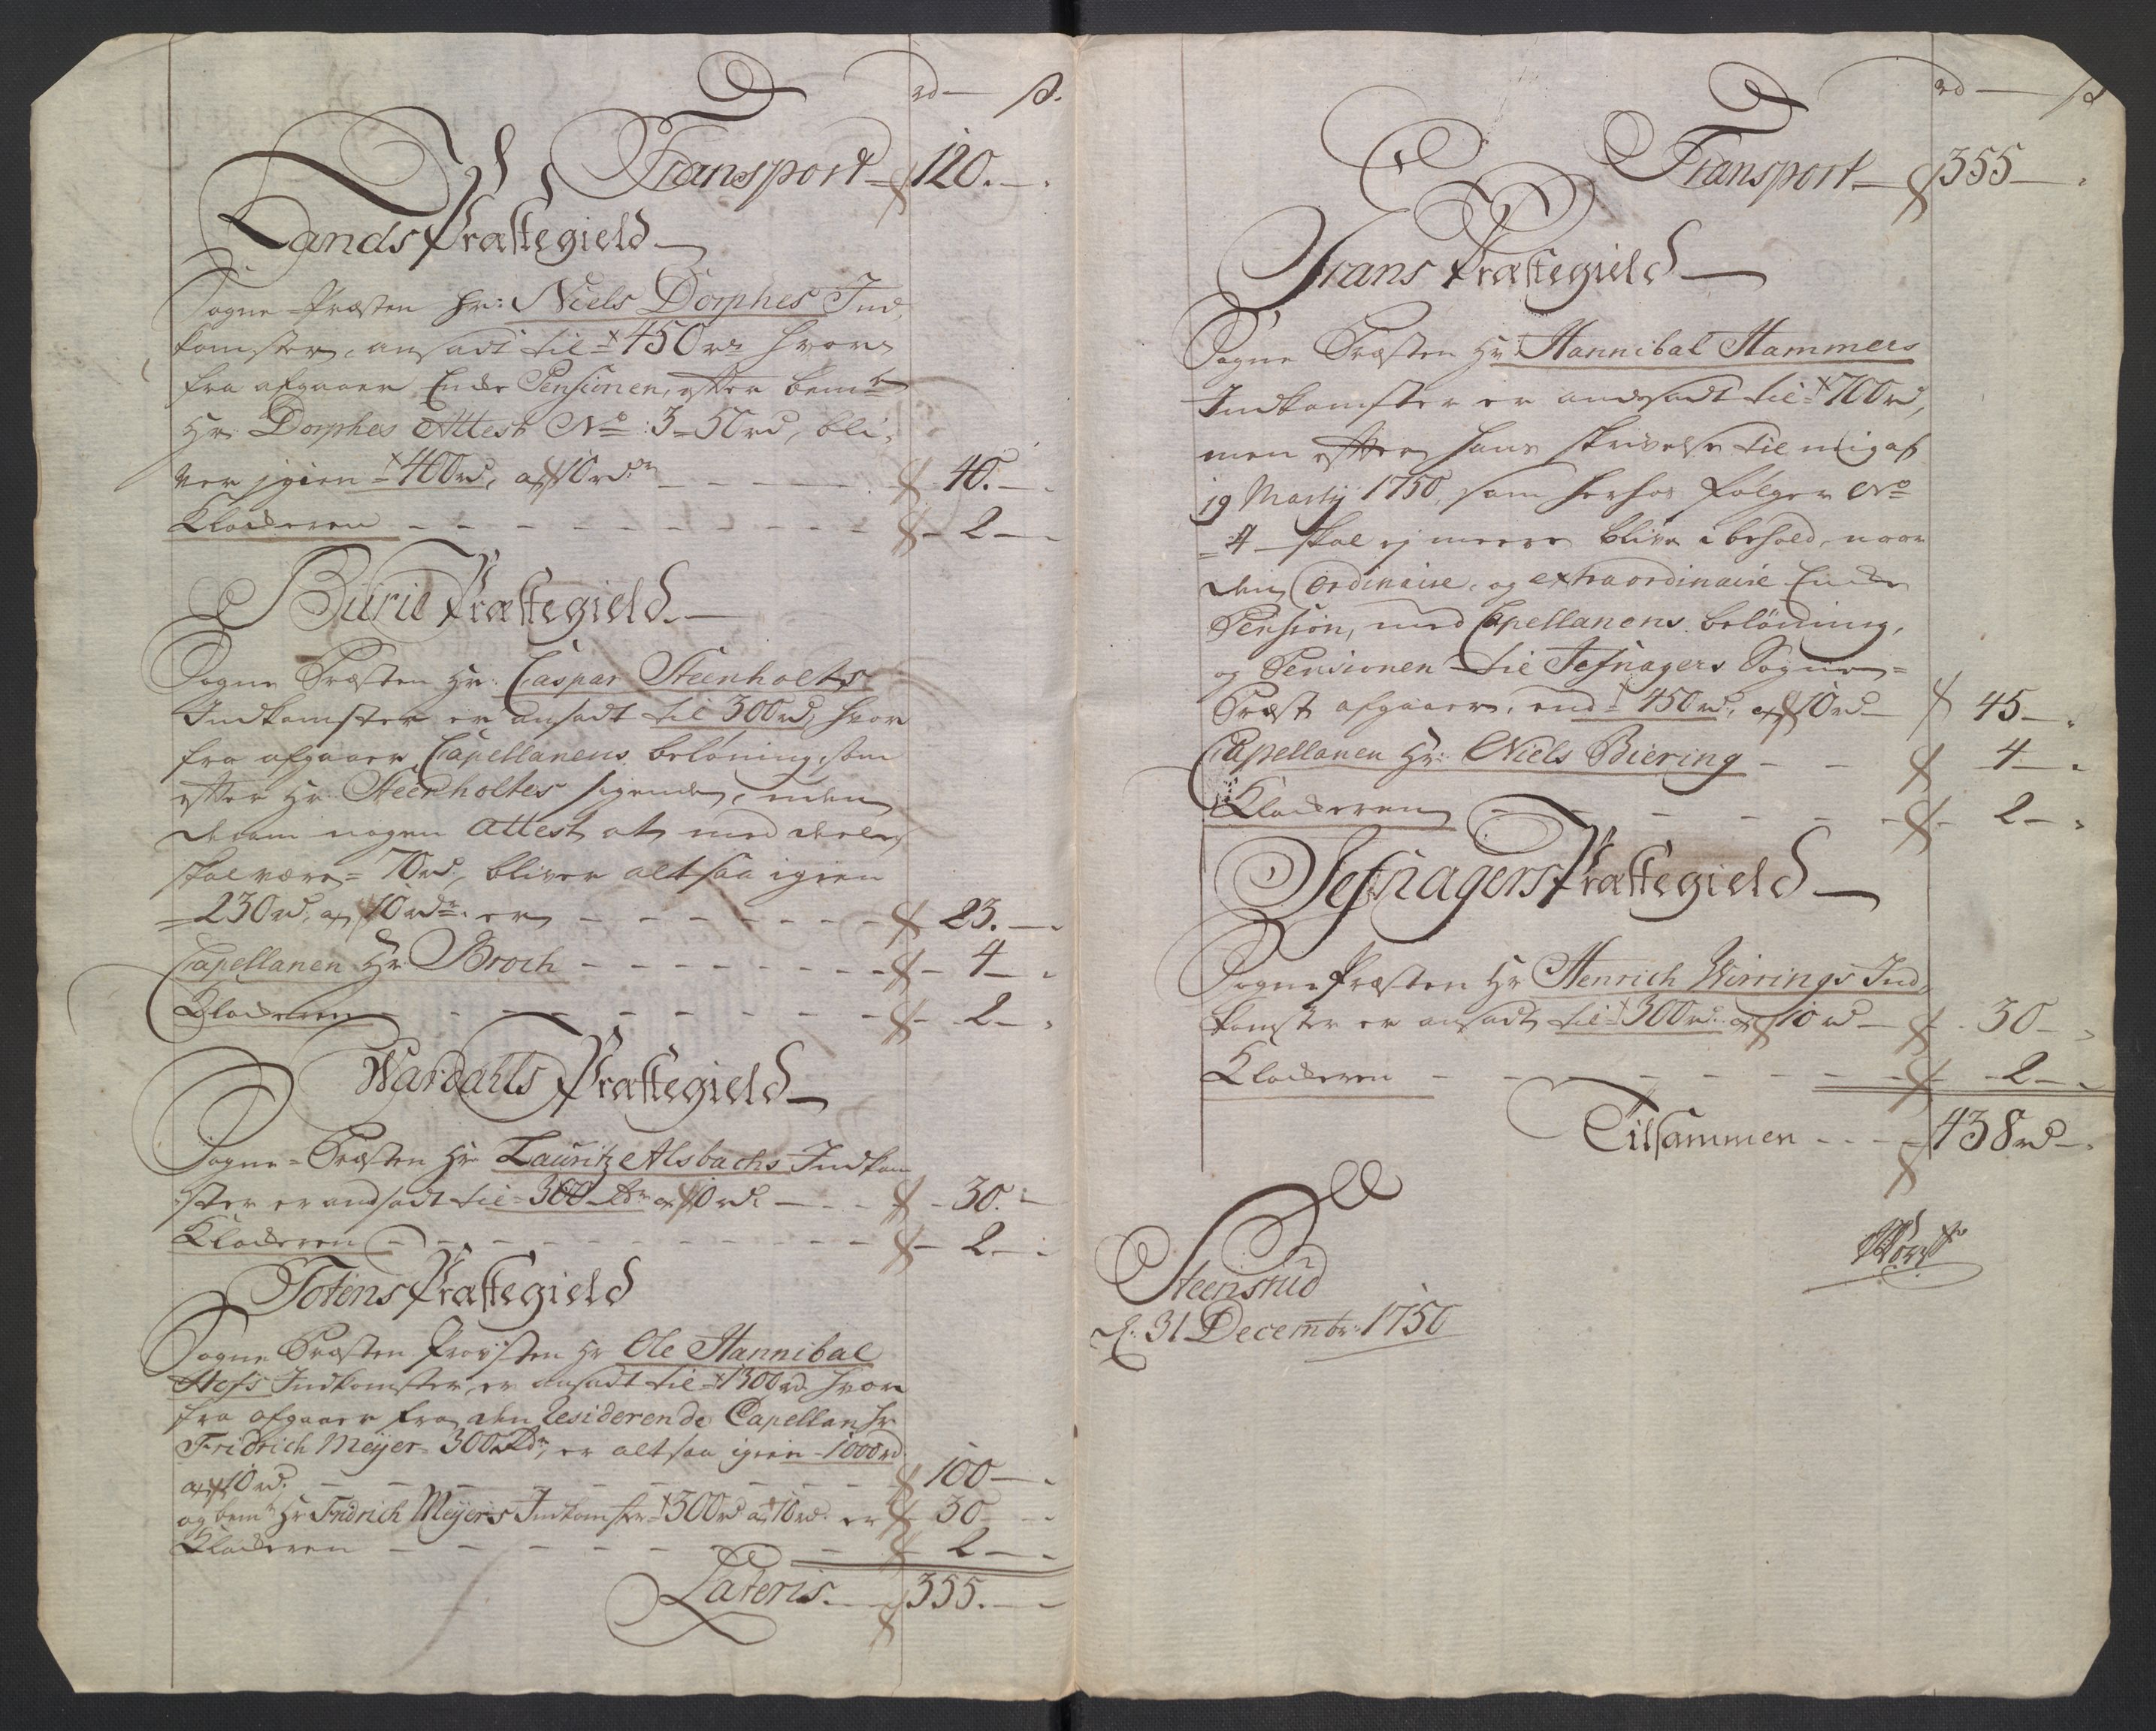 rd — s.
Transport 120. —
Lands Præstegield
Sogne-Præsten Hr: Niels Dorphes Ind,
komster, ansadt til 450 rd hvor
fra afgaaer Enke Pensionen, efter bemte
Hr. Dorphes Attest No: 3 = 50 rd, bli,
ver igien 400 rd, af 10 rd - - 40. —
Klockeren - - 2 —
Büric Præstegield
Sogne Præsten Hr: Caspar Steenholts
Indkomster er ansadt til 300 rd, hvor
fra afgaaer Capellanens beløning, som
efter Hr. Steenholtes sigende, uden
derom nogen Attest at med deele,
skal være = 70 rd, bliver altsaa igien
= 230 rd, af 10 rd er - - 23. —
Capellanen Hr Broch - - 4 —
Klockeren - - 2 —
Wardahls Præstegield
Sogne-Præsten Hr Lauritz Alsbachs Indkom
ster er andsadt til = 300 rdr af 10 rd. - - 30. —
Klockeren - - 2 —
Totens Præstegield
Sogne Præsten Provsten Hr Ole Hannibal
Hofs Indkomster, er ansadt til 1300 rd hvor
fra afgaaer fra den Residerende Capellan Hr
Fridrich Meÿer = 300 Rdr, er altsaa igien 1000 rd
af 10 rd. - - 100 —
og bemte Hr Fridrich Meÿers Indkomster 300 rd af 10 rd. er 30 —
Klockeren - - 2 —
Lateris. 355. —
rd — s
Transport 355 —
Grans Præstegield
Sogne Præsten Hr Hannibal Hammers
Indkomster er andsadt til 700 rd,
men efter hans skrivelse til mig af
19 Martÿ 1750, som herhos følger No
= 4 — skal ej meere blive i behold, naar
den ordinaire og extraordinaire Enke
Pension, med Capellanens beløning,
og Pensionen til Jefnagers Sogne =
Præst afgaaer, end 450 rd, af 10 rd — 45 —
Capellanen Hr: Niels Biering - - 4 —
Klockeren - - 2 —
Jefnagers Præstegield
Sogne Præsten Hr Henrich Wirrings Ind,
komster er ansadt til 300 rd af 10 rd — 30 —
Klockeren - - 2 —
Tilsammen - - 438 rd —
Steensrud
d. 31 Decembr: 1750